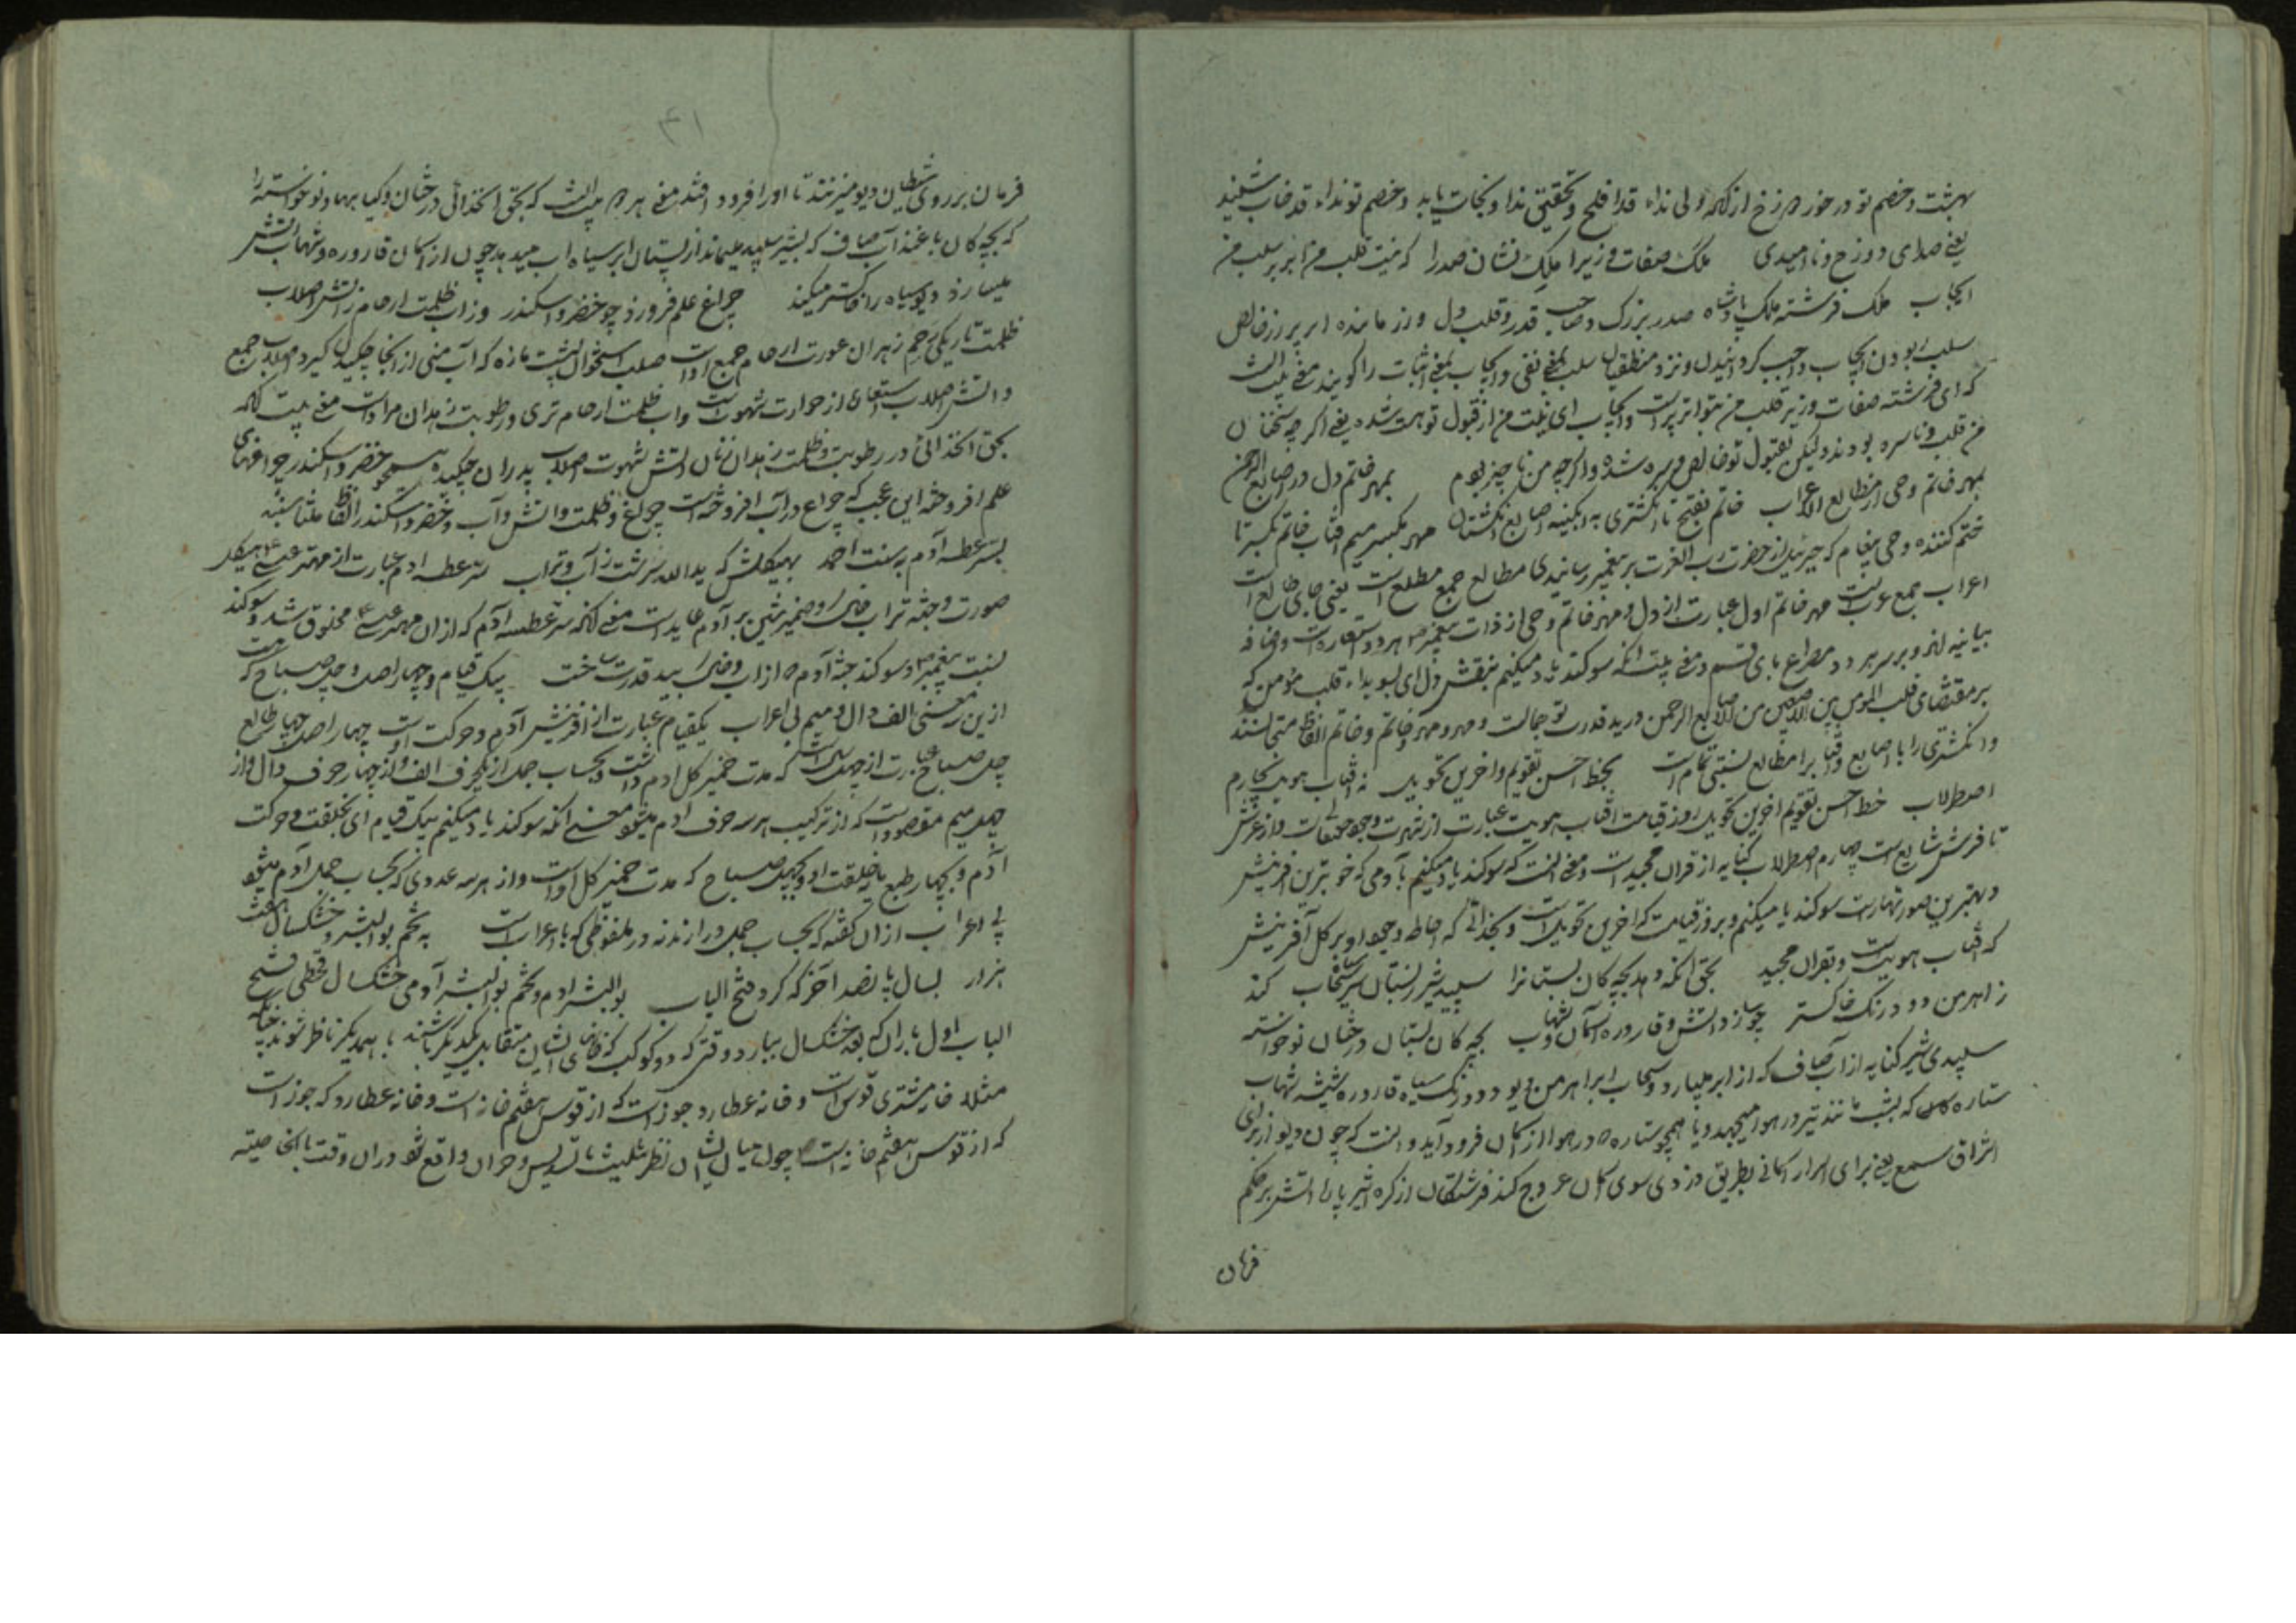 بهشت و خصم تو در خور دوزخ از آنکه ولی نداء قد افلح و تحقیقی ندا و نجات یابد و خصم تو نداء قد خاب شنید
یعنی صدای دوزخ و ناامیدی ملک صفات وزیرا ملک نشان صدرا که نیت قلب من ابریز سلب من
ایجاب ملک فرشته ملک پادشاه صدر بزرگ و صاحب قدر و قلب دل و زر مانده ابریز زر خالص
سلب ربودن ایجاب واجب گردانیدن و نزد منطقیان سلب بمعنی نفی و ایجاب بمعنی اثبات را گویند معنی بیت
که ای فرشته صفات وزیر قلب من بتو ابریز است و ایجاب ای نیت من از قبول تو هست شده یعنی اگرچه سخنان
من قلب و ناسره بودند ولیکن بقبول تو خالص و سره شده و اگرچه من ناچیز بودم بمهر خاتم دل در اصابع الرحمن
بمهر خاتم وحی از مطالع اعراب خاتم بفتح تا انگشتری به آبگینه اصابع انگشتان مهر بکسر میم آفتاب خاتم بکسر تا
ختم کننده وحی پیغام که جبرئیل از حضرت رب العزت بر پیغمبر رسانیدی مطالع جمع مطلع است یعنی جای طالع است
اعراب جمع عرب است مهر خاتم اول عبارت از دل و مهر خاتم وحی از ذات پیغمبر هر دو استعاره است و اضافه
بیانیه اند و بر سر هر دو مصراع بای قسم و معنی بیت آنکه سوگند یاد میکنم بنقش دل ای بسویداء قلب مؤمن که
بر مقتضای قلب المومن بین الاصبعین من اصابع الرحمن در ید قدرت تو جمالت و مهر و مهر و خاتم و خاتم الفاظ متجانسند
و انگشتری را با اصابع و آفتاب را مطالع نسبتی تمام است بخط احسن تقویم و آخرین تحویل به آفتاب هویت بچارم
اصطرلاب خط احسن تقویم آخرین تحویل روز قیامت آفتاب هویت عبارت از شهرت وجود حقتعالی است و از عرش
تا فرش شایع است چهارم اصطرلاب کنایه از قرآن مجید است و معنی آنست که سوگند یاد میکنم بآدمی که خوبترین آفرینش
و بهترین صورتهاست سوگند یاد میکنم و بروز قیامت که آخرین تحویل است و بخدائی که احاطه وجود او بر کل آفرینش
که آفتاب هویت است و بقرآن مجید بحق آنکه دهد بچه‌گان بستانرا سپید شیر ز پستان سر سحاب کند
ز اهرمن دود رنگ خاکستر چو سازد آتش و قاروره ز آسمان و شهاب بچه‌گان بستان درختان نوخواسته
سپیدی شیر کنایه از آب صاف که از ابر میبارد و سحاب ابر اهرمن دیو دود رنگ سیاه قاروره شیشه شهاب
ستاره کلان که بشب مانند تیر در هوا میجهد و یا همچو ستاره در هوا از آسمان فرود آید و آنست که چون دیو از برای
استراق سمع یعنی برای اسرار آسمانی بطریق دزدی سوی آسمان عروج کند فرشتگان از کره اثیر پاره آتش بر حکم
فرمان
۳۱
فرمان بر روی شیطان دیو میزنند تا او را فرود افتد معنی هر دو بیت آنست که بحق آنخدائی درختان و گیاهها و نوخواسته را
که بچه‌گان باغند آب صاف که بشیر سپید میماند از پستان ابر سیاه آب میدهد چون از آسمان قاروره و شهاب آتش
میبارد دیو سیاه را خاکستر میکند چراغ علم فروزد چو خضر و اسکندر وز آب ظلمت ارحام ز آتش اصلاب
ظلمت تاریکی رحم زهدان عورت ارحام جمع اوست صلب استخوان پشت مازه که آب منی از آنجا چکیدن گیرد اصلاب جمع
و آتش اصلاب استعاره از حرارت شهوت است و آب ظلمت ارحام تری و رطوبت زهدان مراد است معنی بیت آنکه
بحق آنخدائی در رطوبت و ظلمت زهدان زنان از آتش شهوت اصلاب پدران چکیده همچو خضر و اسکندر چراغهای
علم افروخته این عجب که چراغ در آب افروخته است چراغ و ظلمت و آتش و آب و خضر و اسکندر الفاظ متناسبند
بسر عطسه آدم بسنت احمد بهیکلش که ید الله سرشت ز آب و تراب سر عطسه آدم عبارت از مهتر عیسی هیکل
صورت و جثه تراب خاک و ضمیر شین بر آدم عاید است معنی آنکه سر عطسه آدم که از آن مهتر عیسی مخلوق شد و سوگند
بسنت پیغمبر و سوگند بجثه آدم که از آب و خاک بید قدرت ساخت بیک قیام و چهار اصل و چل صباح که هست
ازین معنی الف دال و میم بی اعراب یکقیام عبارت از آفرینش آدم و حرکت اوست چهار اصل چهار طالع
چل صباح عبارت از چهل سال است که مدت خمیر گل آدم داشت و بحساب جمل از یکحرف الف و از چهار حرف دال و از
چهل میم مقصود است که از ترکیب هر سه حرف آدم میشود معنی آنکه سوگند یاد میکنم بیک قیام ای بخلقت و حرکت
آدم و چهار طبع با خلقت او و چهل صباح که مدت خمیر گل اوست و از هر سه عددی که بحساب جمل آدم میشود
بی اعراب از آن گفته که بحساب جمل در آرندنه در ملفوظی که با اعراب است به تخم بوالبشر و خشکسال هفت
هزار بسال پانصد آخر که کرد فتح الباب بوالبشر آدم و تخم بوالبشر آدمی خشکسال قحطی فتح
الباب اول باران که بعد خشکسال ببارد وقتی که دو کوکب که خانهای ایشان متقابل یکدیگر باشند با همدیگر ناظر شوند چنانکه
مثلا خانه مشتری قوس است و خانه عطارد جوزاست که از قوس هفتم خانه است و خانه عطارد که جوزاست
که از قوس هفتم خانه است چون میان ایشان نظر تثلیث یا تسدیس و جز آن واقع شود در آن وقت بالخاصیته